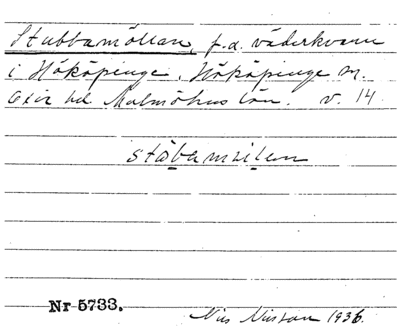 Stubbamöllan, f.d. väderkvarn
i Hököpinge, Hököpinge sn.
Oxie hd Malmöhus län. v. 14
Nr 5733.
Nils Nilsson 1936.